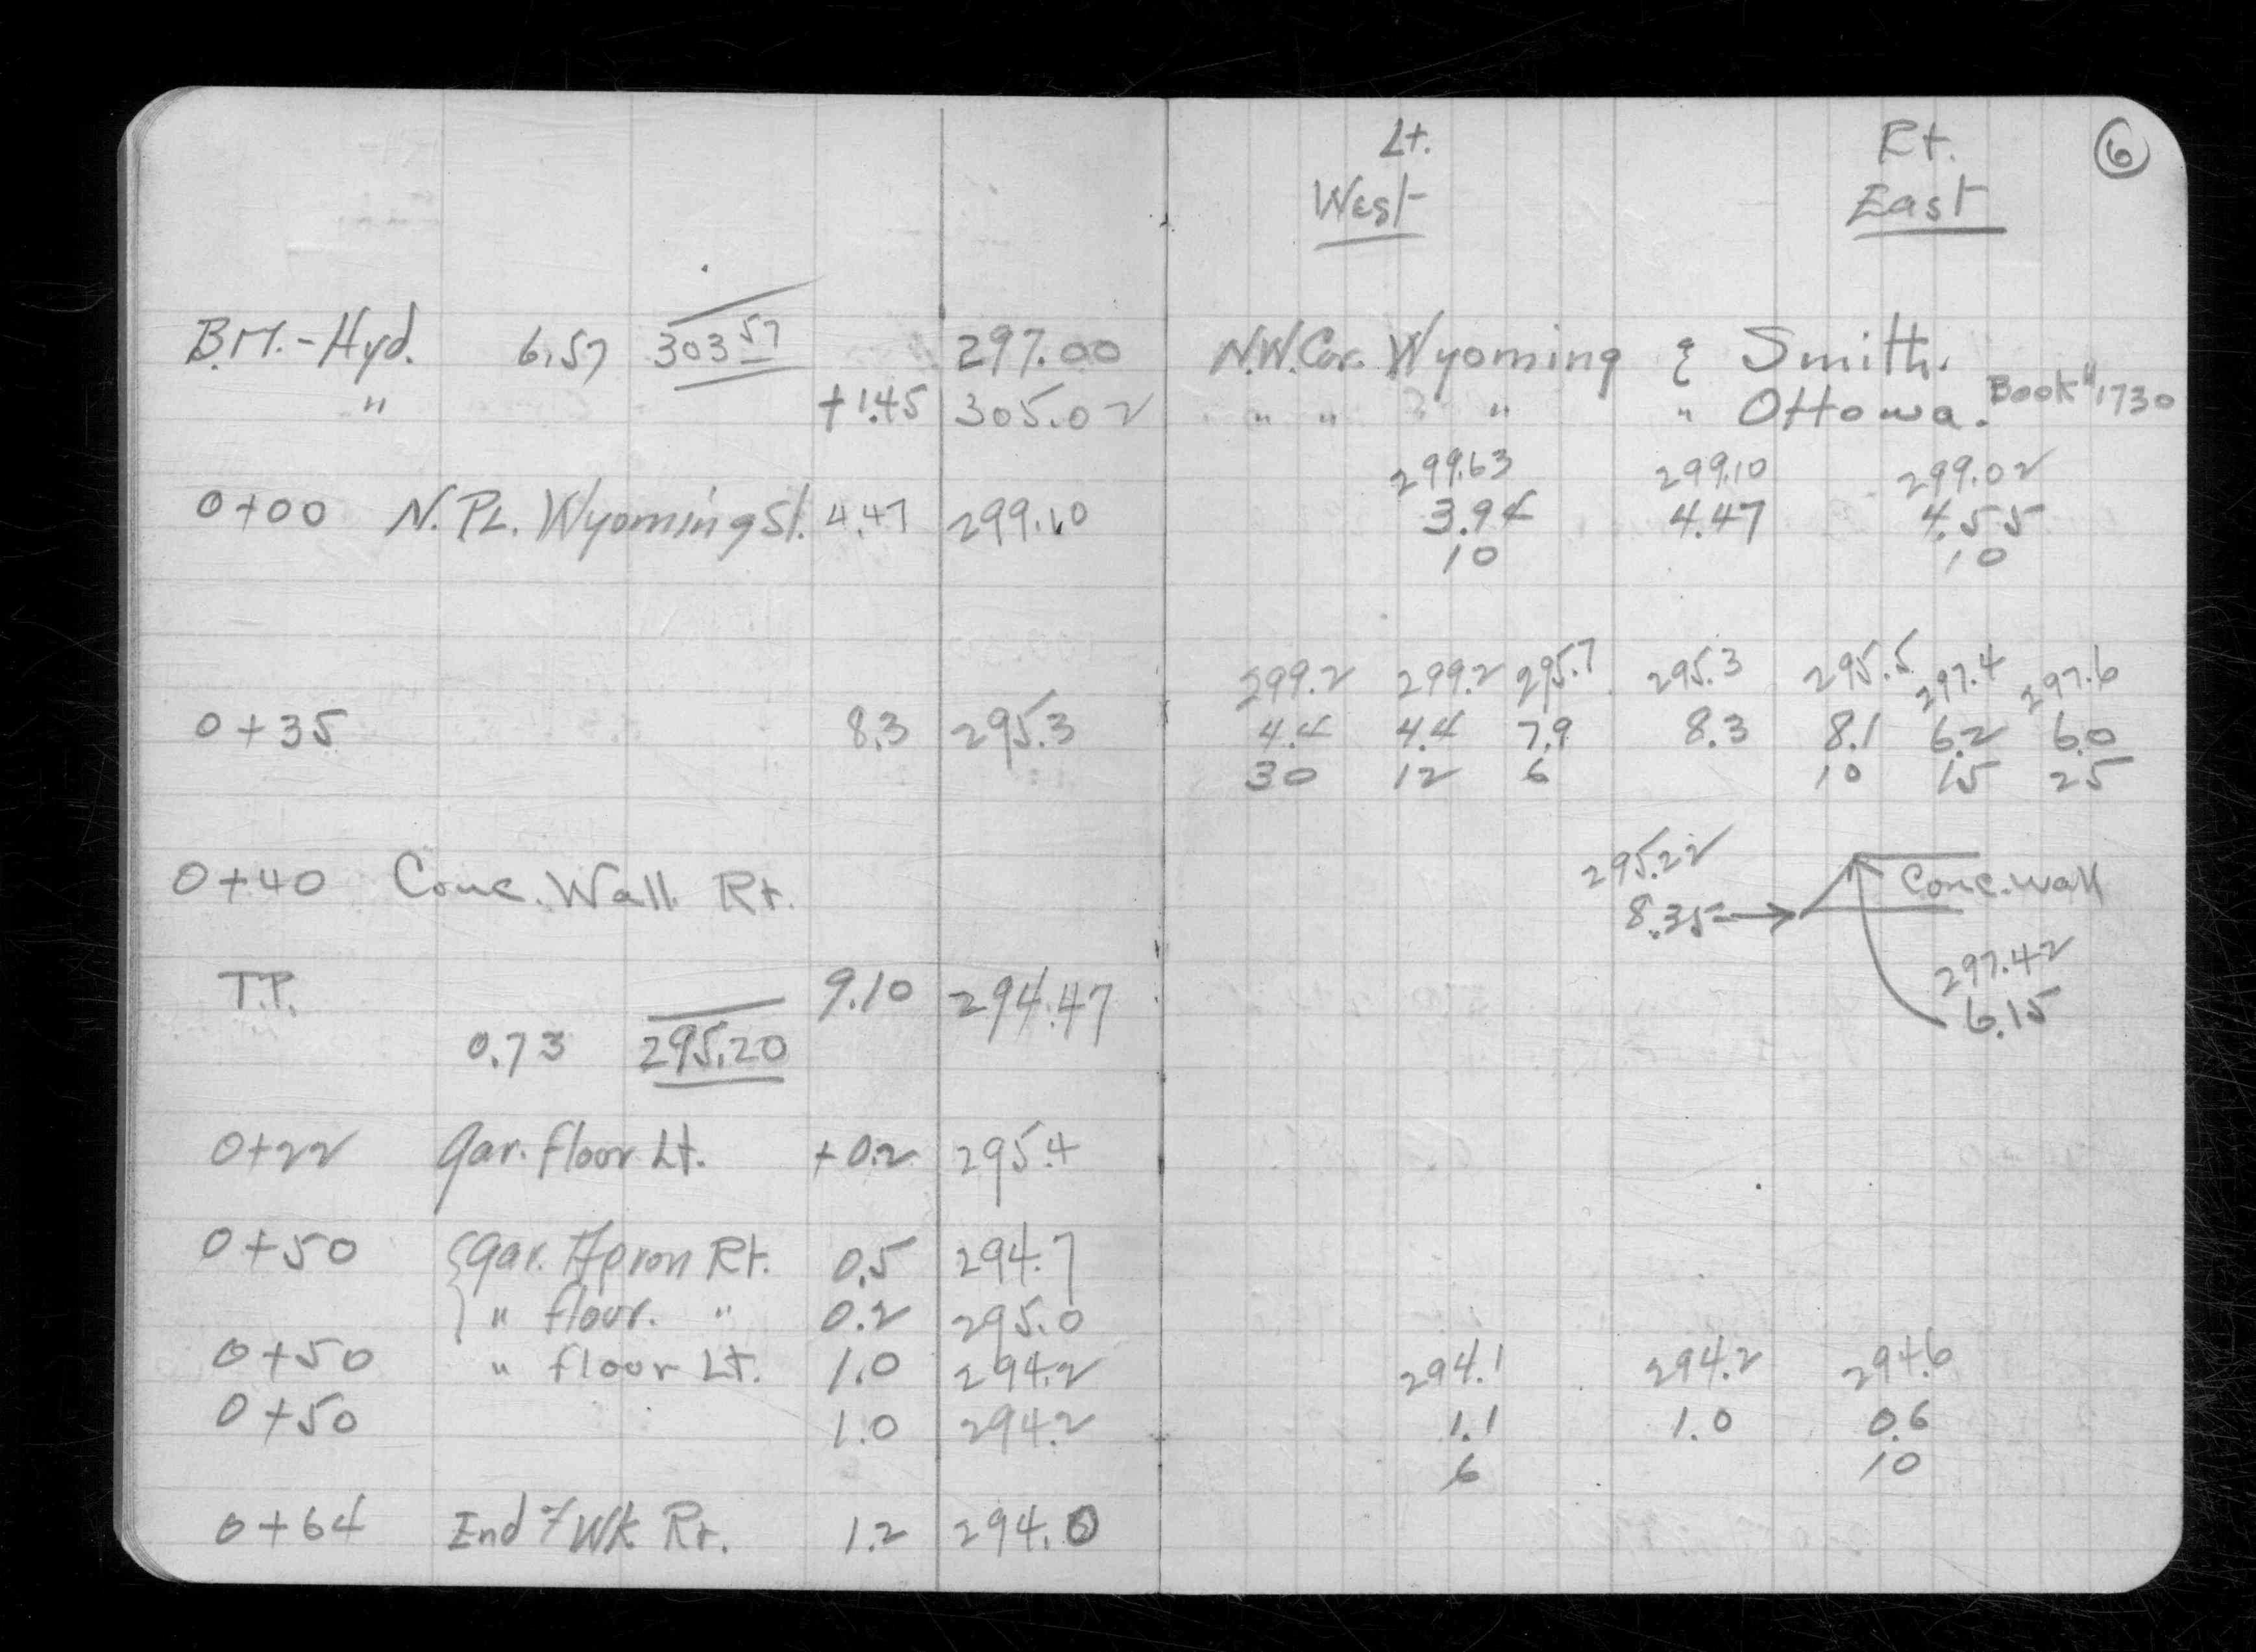 Lt. Rt. 6
West East
B.M.-Hyd. 6.57 303.57 297.00 N.W. Cor. Wyoming & Smith.
" +1.45 305.02 " " " " Ottowa. Book # 1730
299.63 299.10 299.02
0+00 N. PL. Wyoming St. 4.47 299.10 3.94 4.47 4.55
10 10
299.2 299.2 295.7 295.3 295.5 297.4 297.6
0+35 8.3 295.3 4.4 4.4 7.9 8.3 8.1 6.2 6.0
30 12 6 10 15 25
295.22
0+40 Conc. Wall Rt. 8.35 Conc. Wall
297.42
T.P. 9.10 294.47 6.15
0.73 295.20
0+22 Gar. floor Lt. +0.2 295.4
0+50 Gar. Apron Rt. 0.5 294.7
" floor. " 0.2 295.0
0+50 " floor Lt. 1.0 294.2 294.1 294.2 294.6
0+50 1.0 294.2 1.1 1.0 0.6
6 10
0+64 End of Wk Rt. 1.2 294.0